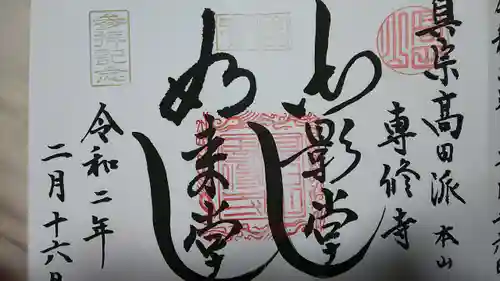 真宗高田派 本山
専修寺
御影堂
如来堂
参拝記念
令和二年
二月十六日